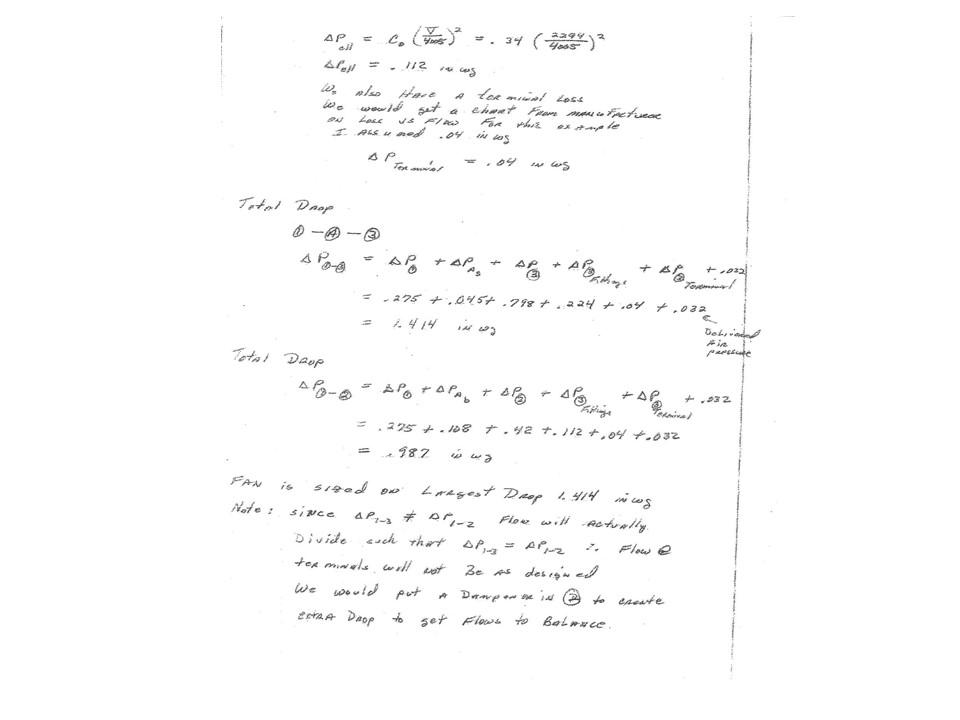 ΔP_ell = C₀ (V̅/4005)² = .34 (2294/4005)²
ΔP_ell = .112 in wg
We also Have A terminal Loss
We would get a chart From manufacturer
on Loss vs Flow For this example
I Assumed .04 in wg
ΔP_Terminal = .04 in wg
Total Drop
① – Ⓐ – ③
ΔP_①-③ = ΔP_① + ΔP_As + ΔP_③ + ΔP_③ Fittings + ΔP_③ Terminal + .032
= .275 + .045 + .798 + .224 + .04 + .032
= 1.414 in wg
Delivered
Air
pressure
Total Drop
ΔP_①-② = ΔP_① + ΔP_Ab + ΔP_② + ΔP_③ Fittings + ΔP_② Terminal + .032
= .275 + .108 + .42 + .112 + .04 + .032
= .987 in wg
FAN is sized on Largest Drop 1.414 in wg
Note: since ΔP₁₋₃ ≠ ΔP₁₋₂ Flow will Actually
Divide such that ΔP₁₋₃ = ΔP₁₋₂ ∴ Flow @
terminals will not Be as designed
We would put a Dampener in ② to create
extra Drop to get Flows to Balance.